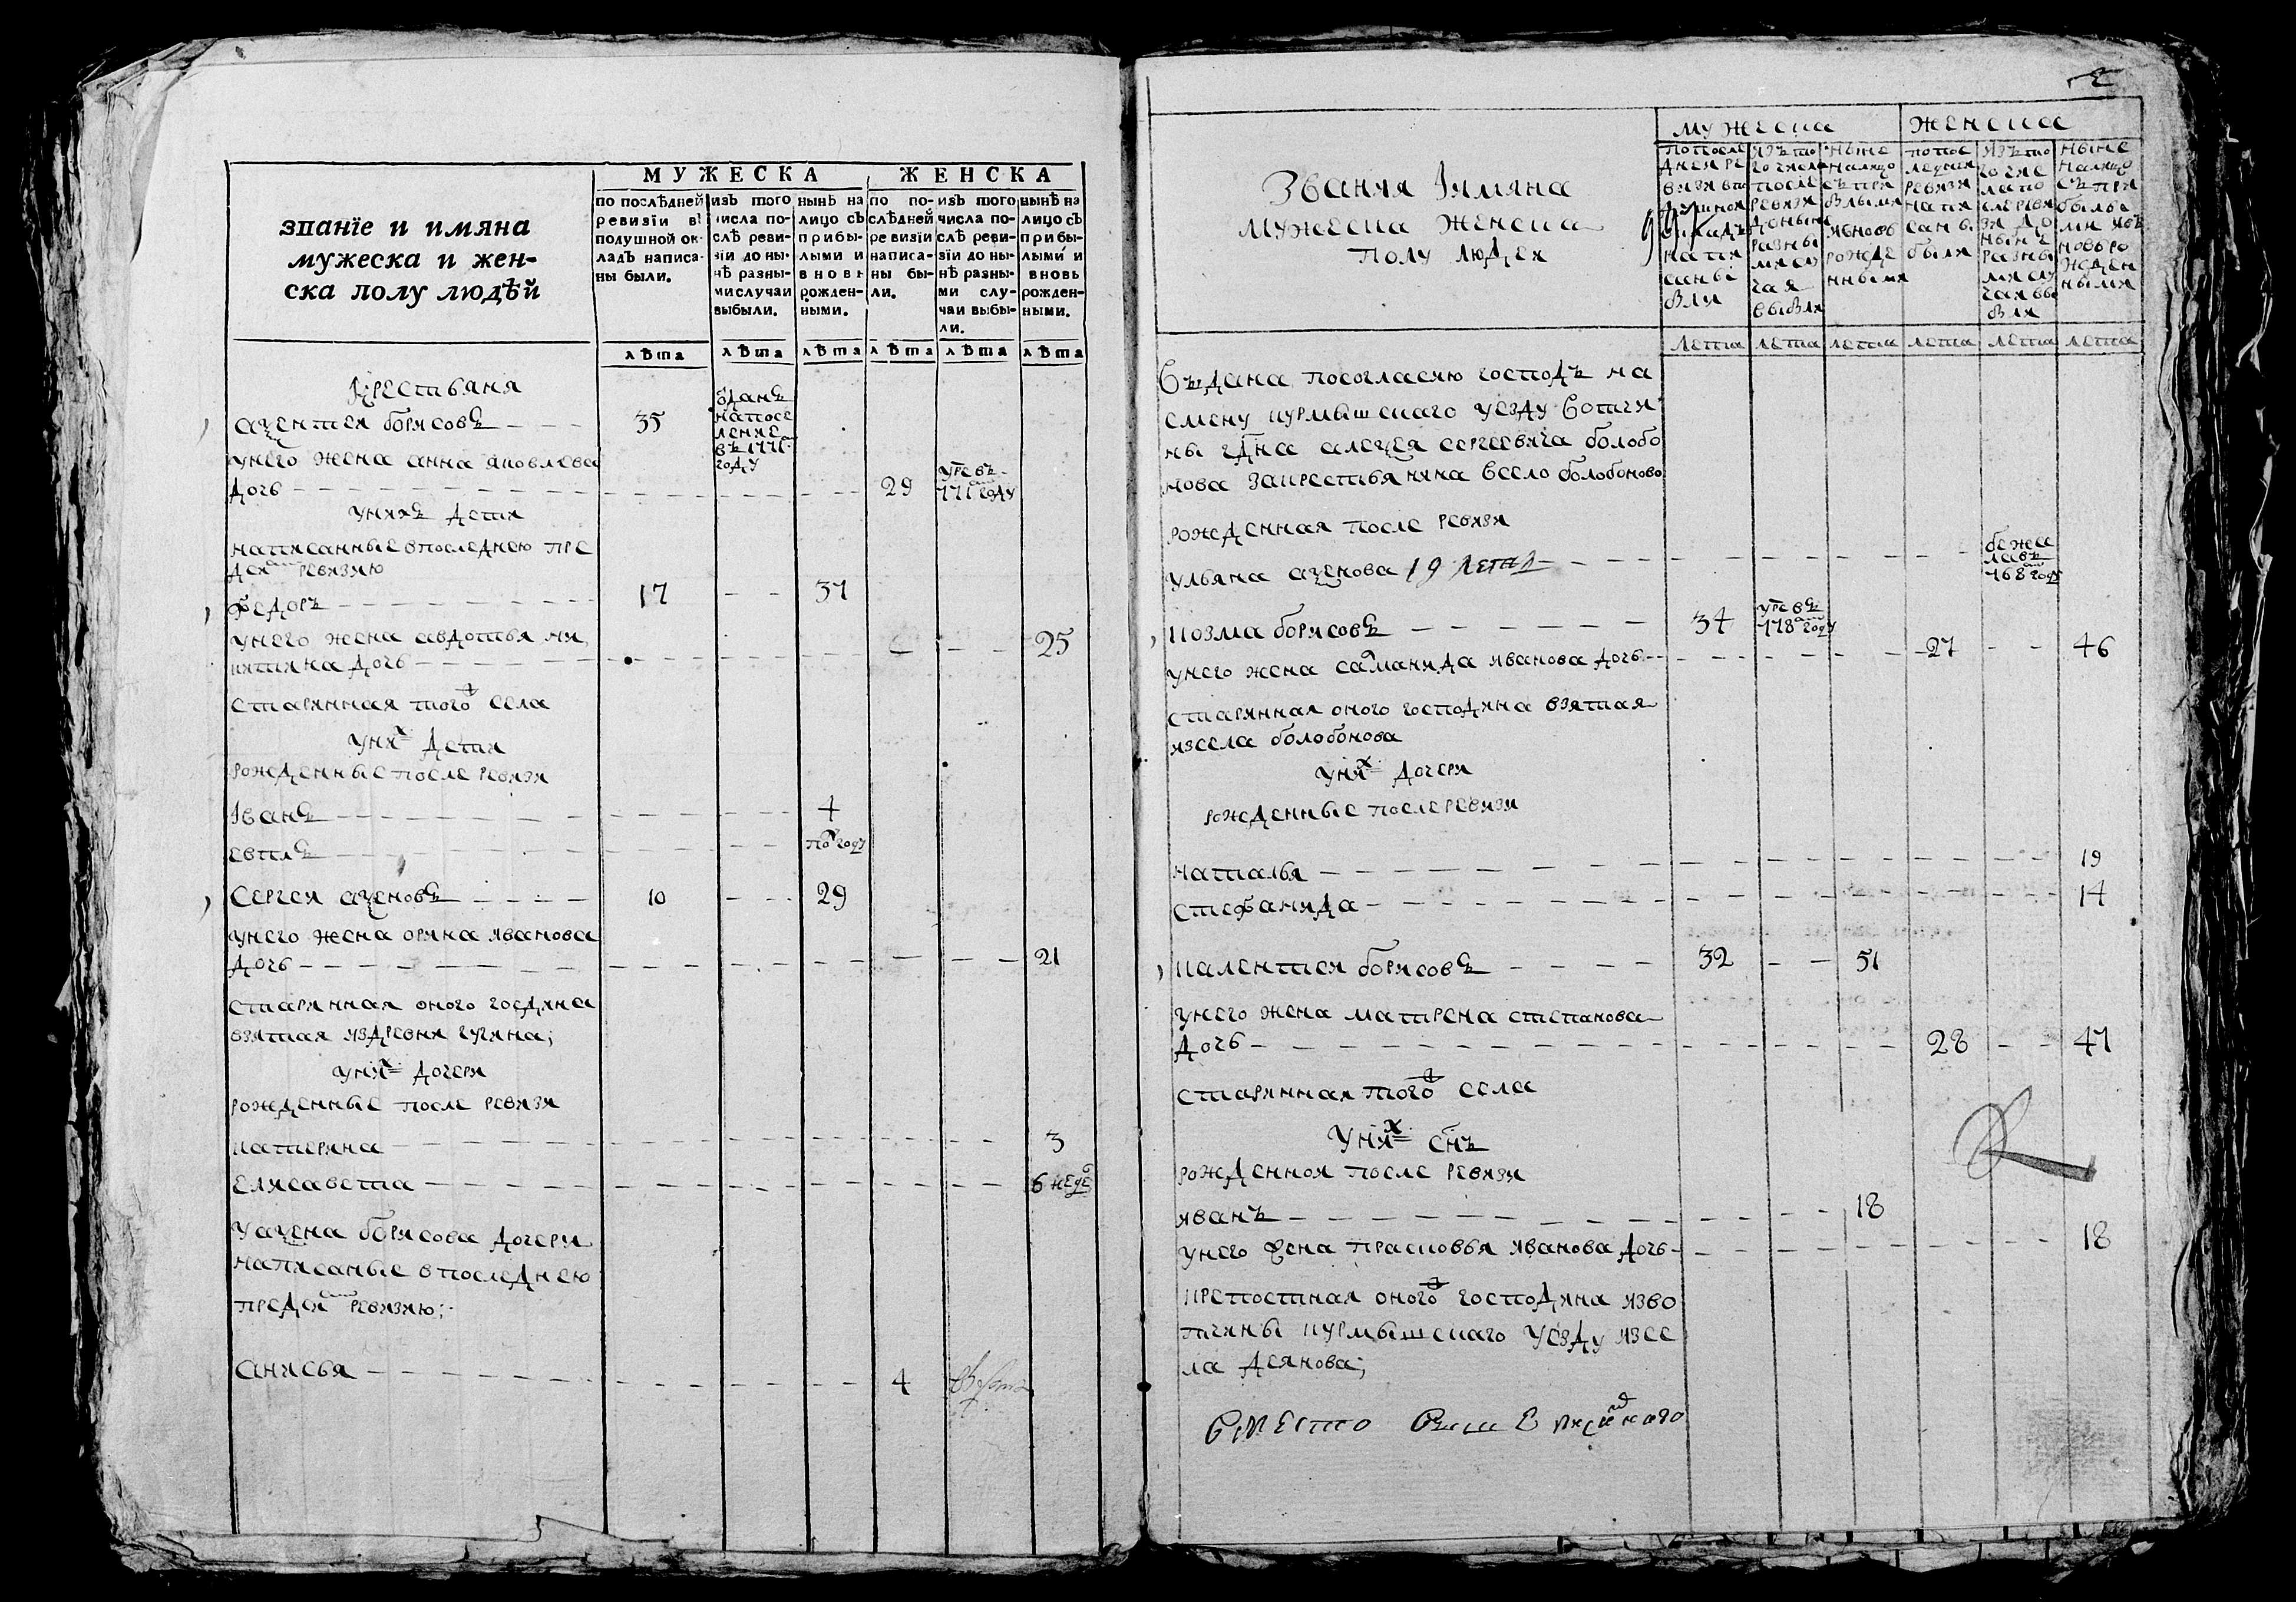 званїе и имяна
мужеска и жен-
ска полу людѣй
МУЖЕСКА
ЖЕНСКА
по послѣдней
ревизїи въ
подушной ок-
ладъ написа-
ны были.
изъ того
числа по-
слѣ реви-
зїи до ны-
нѣ разны-
ми случаи
выбыли.
нынѣ на
лицо съ
прибы-
лыми и
вновь
рожден-
ными.
по по-
слѣдней
ревизїи
написа-
ны бы-
ли.
изъ того
числа по-
слѣ реви-
зїи до ны-
нѣ разны-
ми слу-
чаи выбы-
ли.
нынѣ на
лицо съ
прибы-
лыми и
вновь
рожден-
ными.
лѣта лѣта лѣта лѣта лѣта лѣта
Крестьяня
борисовъ 35
отданъ
на посе
ление
году
у него жена анна яковлева
дочь 29
умре въ
году
у нихъ дети
написанные в последнею пре
ревизию
федоръ 17 37
у него жена авдотья ни
китина дочь 25
старинная того села
у них дети
рожденные после ревизи
Іванъ 4
евплъ пол году
Сергеи 10 29
у него жена орина иванова
дочь 21
старинная оного госдина
взятая из древни
у них дочери
рожденные после ревизи
катерина 3
елисавета 6 неде
борисова дочери
написаные в последнею
ревизию;
анисья 4
Звания Імяна
мужеска женска
полу людеи
мужеска
женска
по после
днеи ре
визи въ по
душнои
окладъ
написаны
были
изъ то
го числа
после
ревизи
доныне
разны
ми слу
чаи
выбыли
ныне
налицо
съ при
былыми
и вновь
рожде
нными
по пос
ледни
ревизи
напи
саны
были
изъ то
го чис
ла по
сле реви
зи до
ныне
разны
ми слу
чаи вы
были
ныне
налицо
съ при
былы
ми и въ
новь ро
жден
ными
лета лета лета лета лета лета
въдана по согласию господъ на
смену курмышскаго уезду вотчи
ны гдна алецея сергеевича болобо
нова за крестьянина в село болобоново
рожденная после ревизи
ульяна 19 летъ
бежа
ла въ
768 году
козма борисовъ 34
умре въ
778 году
у него жена саманида иванова дочь 27 46
старинная оного господина взятая
из села болобонова
у них дочери
рожденные после ревизи
наталья 19
стефанида 14
калентеи борисовъ 32 51
у него жена матрена степанова
дочь 28 47
старинная того села
у них снъ
рожденнои после ревизи
иванъ 18
у него жена прасковья иванова дочь 18
крепостная оного господина из во
тчины курмышскаго уезду из се
ла деянова;
вместо